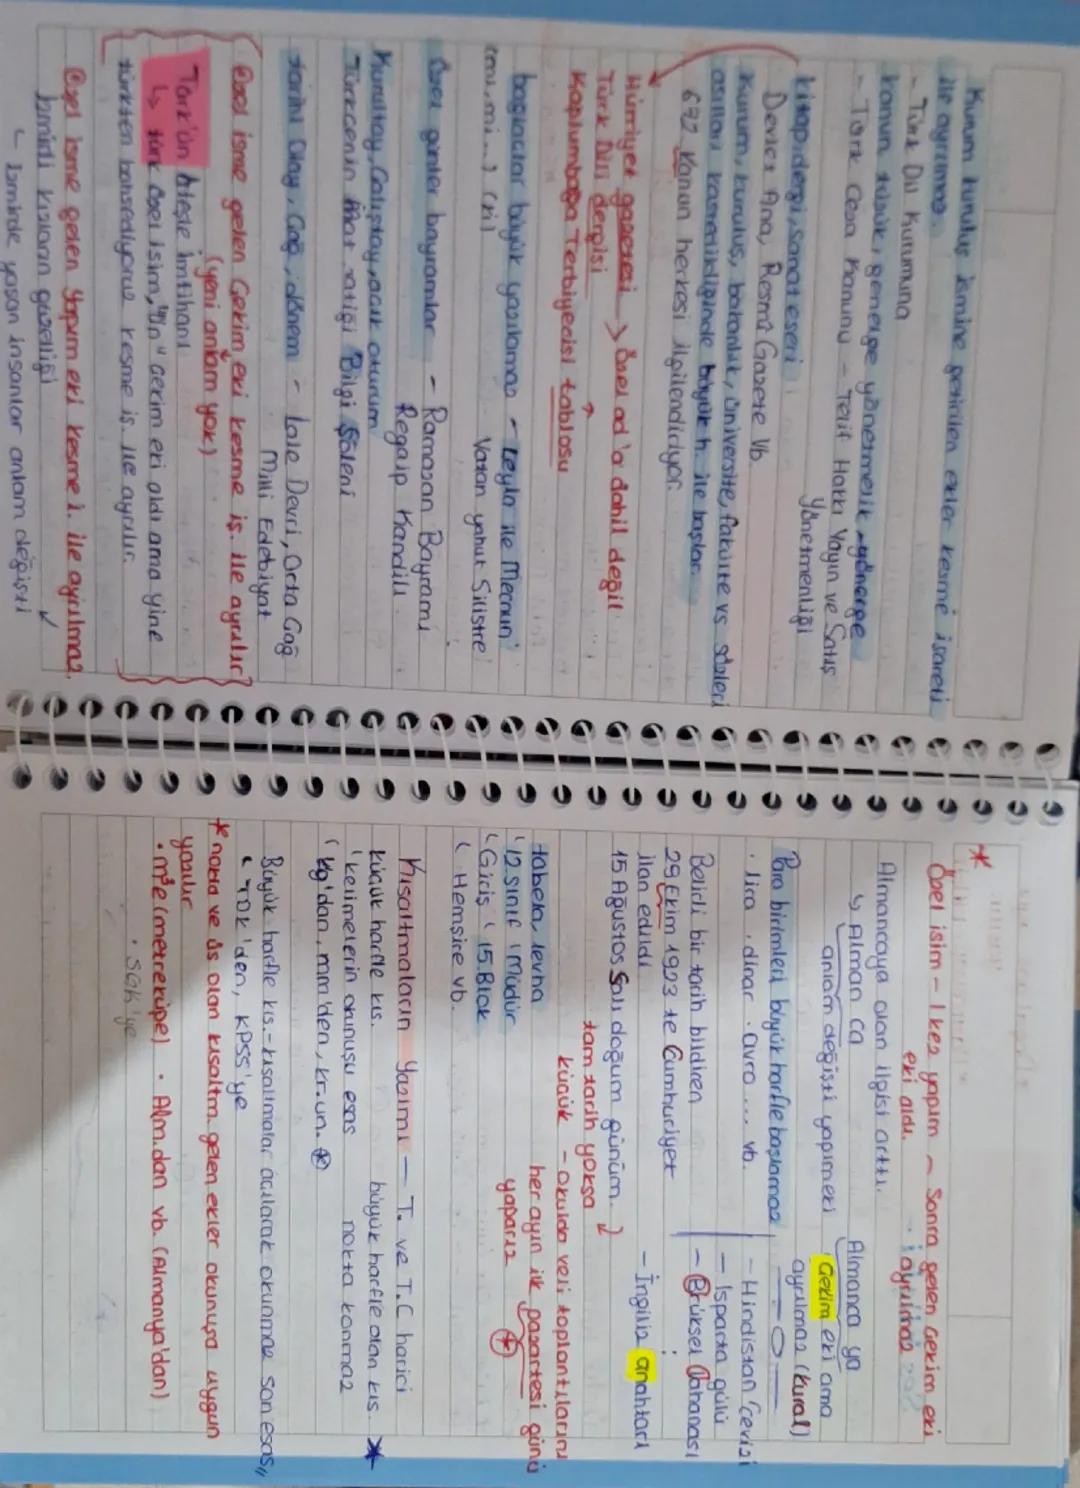 Kurum kuruluş ismine getirilen ekler kesme işareti
ile ayrılmaz.
- Türk Dil Kurumuna
kanun, tüzük, genelge yönetmelik, yönerge
- Türk Ceza Kanunu - Telif Hakkı Yayın ve Satış
Yönetmenliği
kitap, dergi, sanat eseri
Devlet Ana, Resmî Gazete vb.
Kurum, kuruluş, bakanlık, üniversite, fakülte vs sözleri
asılları kasredildiğinde büyük h. ile başlar.
Kanun herkesi ilgilendiriyor.
Hürriyet gazetesi → Özel ad'a dahil değil
Türk Dili dergisi
Kaplumbağa Terbiyecisi tablosu
bağlaçlar büyük yazılamaz - Leyla ile Mecnun
(mı, mi...)
Vatan yahut Silistre
Özel günler bayramlar - Ramazan Bayramı
Regaip Kandili
Kurultay, Çalıştay, açık oturum
Türkçenin Bilgi Şöleni
tarihi Olay, Çağ, dönem - Lale Devri, Orta Çağ
Milli Edebiyat
Özel isme gelen Çekim eki kesme iş. ile ayrılır
(yeni anlam yok)
Türk'ün Ateşle İmtihanı
↳ türk özel isim, "ün" çekim eki aldı ama yine
türkten bahsediyoruz kesme iş. ile ayrılır.
Özel isme gelen Yapım eki kesme i. ile ayrılmaz.
İzmirli kızların güzelliği
İzmirde yaşan insanlar anlam değişti
*
Özel isim - 1 kez yapım - Sonra gelen çekim eki
eki aldı. ayrılmaz
Almancaya olan ilgisi arttı.
↳ Alman ca Almanca ya
anlam değişti yapımeki Çekim eki ama
ayrılmaz (kural)
Para birimleri büyük harfle başlamaz
. lira . dinar . avro ... vb.
- Hindistan cevizi
- Isparta gülü
- Brüksel lahanası
- İngiliz anahtarı
Belirli bir tarih bildiren
29 Ekim 1923 te Cumhuriyet
ilan edildi
15 Ağustos Salı doğum günüm.
tam tarih yoksa
küçük - okulda veli toplantılarını
her ayın ilk pazartesi günü
yaparız
tabela, levha
12.sınıf Müdür
Giriş 15.Blok
Hemşire vb.
Kısaltmaların Yazımı - T. ve T.C harici
küçük harfle kıs. büyük harfle olan kıs. *
kelimelerin okunuşu esas nokta konmaz
kg'dan, mm'den, kr.un.
Büyük harfle kıs. - kısaltmalar açılarak okunmaz son esas,,
TDK'den, KPSS'ye
* nokta ve üs olan kısaltm. gelen ekler okunuşa uygun
yazılır
. m³e (metreküpe) . Alm.dan vb. (Almanya'dan)
. SGK'ye